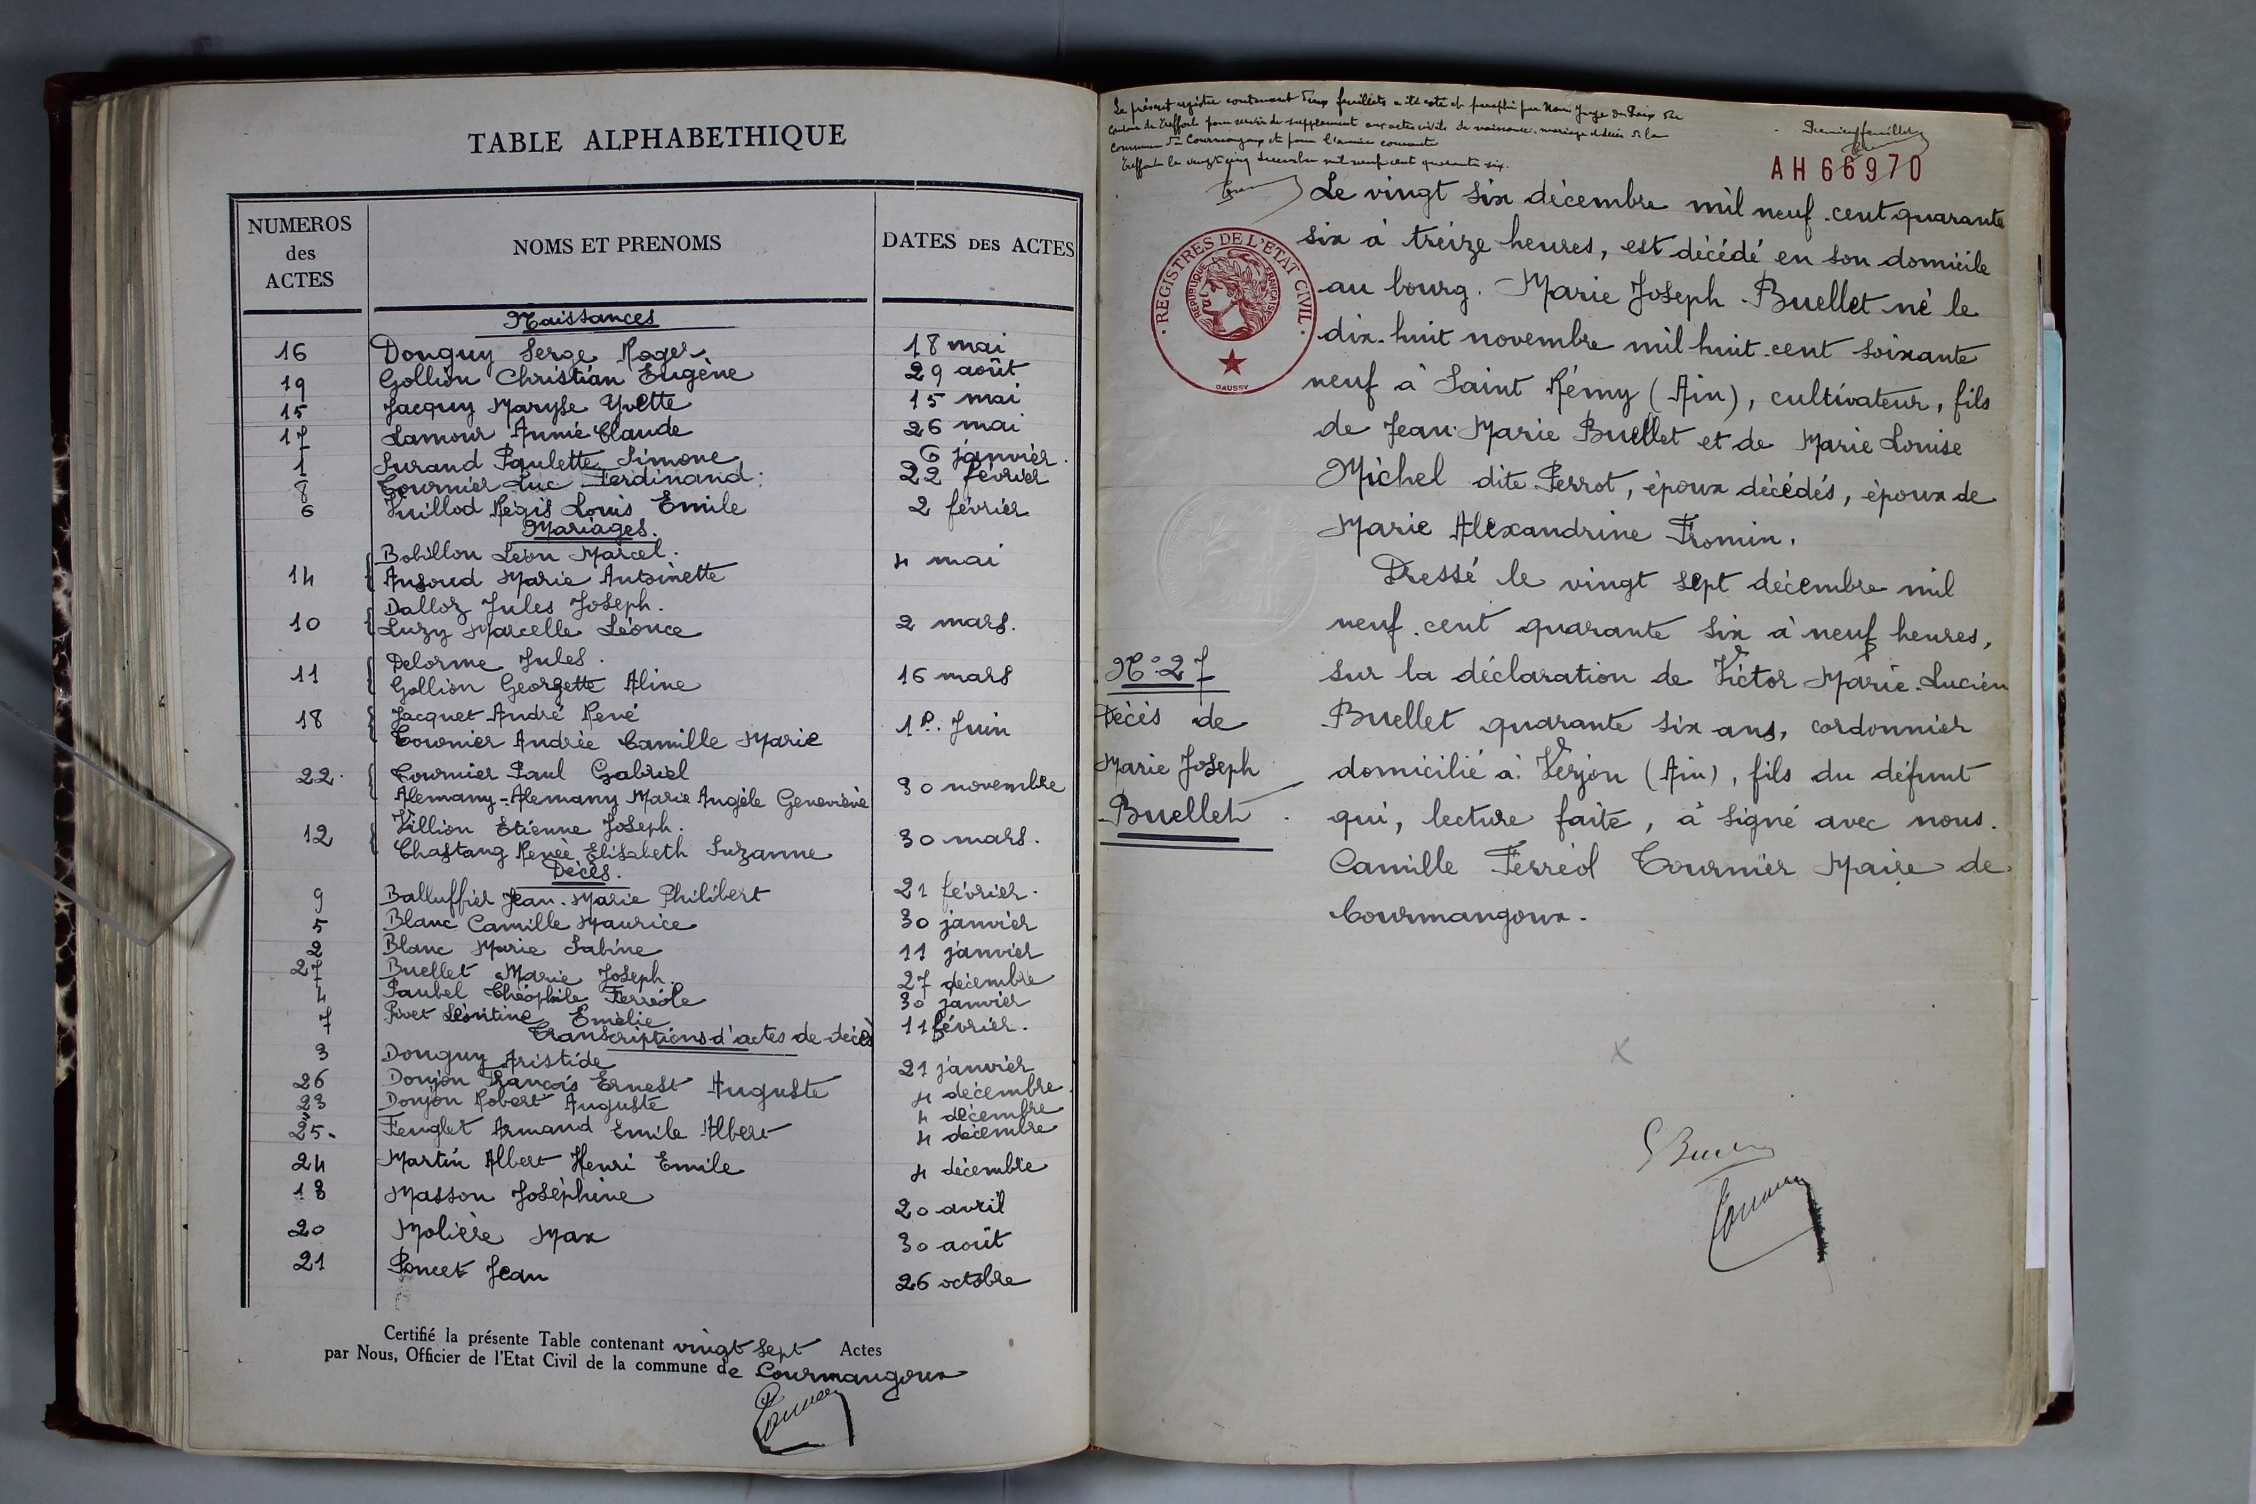 TABLE ALPHABETHIQUE
NUMEROS des ACTES
NOMS ET PRENOMS
DATES DES ACTES
Naissances
16 Donguy Serge Roger. 18 mai
19 Gollion Christian Eugène 29 août
15 Jacquy Maryse Yvette 15 mai
17 Lamour Annie Claude 26 mai
1 Surand Paulette Simone 6 janvier.
8 Tournier Luc Ferdinand. 22 février
6 Vuillod Régis Louis Emile 2 février
Mariages.
Bobillon Léon Marcel.
14 Ansoud Marie Antoinette 4 mai
Dalloz Jules Joseph.
10 Luzy Marcelle Léonce 2 mars.
Delorme Jules.
11 Gollion Georgette Aline 16 mars
18 Jacquet André René
Tournier Andrée Camille Marie 1er. Juin
22. Tournier Paul Gabriel
Alemany-Alemany Marie Angèle Geneviève 30 novembre
Villion Etienne Joseph.
12 Chastang Renée Elisabeth Suzanne 30 mars.
Décès.
9 Balluffier Jean-Marie Philibert 21 février.
5 Blanc Camille Maurice 30 janvier
2 Blanc Marie Sabine 11 janvier
27 Buellet Marie Joseph 27 décembre
4 Paubel Théophile Ferréole 30 janvier
7 Pivet Léontine Emélie 11 février.
Transcriptions d'actes de décès
3 Donguy Aristide 21 janvier
26 Donjon François Ernest Auguste 4 décembre.
23 Donjon Robert Auguste 4 décembre
25. Fenglet Armand Emile Albert 4 décembre
24 Martin Albert Henri Emile 4 décembre
13 Masson Joséphine 20 avril
20 Molière Max 30 août
21 Poncet Jean 26 octobre
Certifié la présente Table contenant vingt sept Actes
par Nous, Officier de l'Etat Civil de la commune de Courmangoux
Le présent registre contenant deux feuillets a été coté et paraphé par Nous Juge de Paix du
canton de Treffort pour servir de supplément aux actes civils de naissance, mariage et décès de la
commune de Courmangoux et pour l'année courante
Treffort le vingt cinq décembre mil neuf cent quarante six.
Premier feuillet
AH 66970
REGISTRES DE L'ETAT CIVIL
REPUBLIQUE FRANÇAISE
DAUSSY
Le vingt six décembre mil neuf cent quarante
six à treize heures, est décédé en son domicile
au bourg. Marie Joseph Buellet né le
dix-huit novembre mil huit cent soixante
neuf à Saint Rémy (Ain), cultivateur, fils
de Jean-Marie Buellet et de Marie Louise
Michel dite Perrot, époux décédés, époux de
Marie Alexandrine Fromin.
Dressé le vingt sept décembre mil
neuf cent quarante six à neuf heures,
sur la déclaration de Victor Marie-Lucien
Buellet quarante six ans, cordonnier
domicilié à Verjon (Ain), fils du défunt
qui, lecture faite, à signé avec nous.
Camille Ferréol Tournier Maire de
Courmangoux.
N° 27
Décès de
Marie Joseph
Buellet